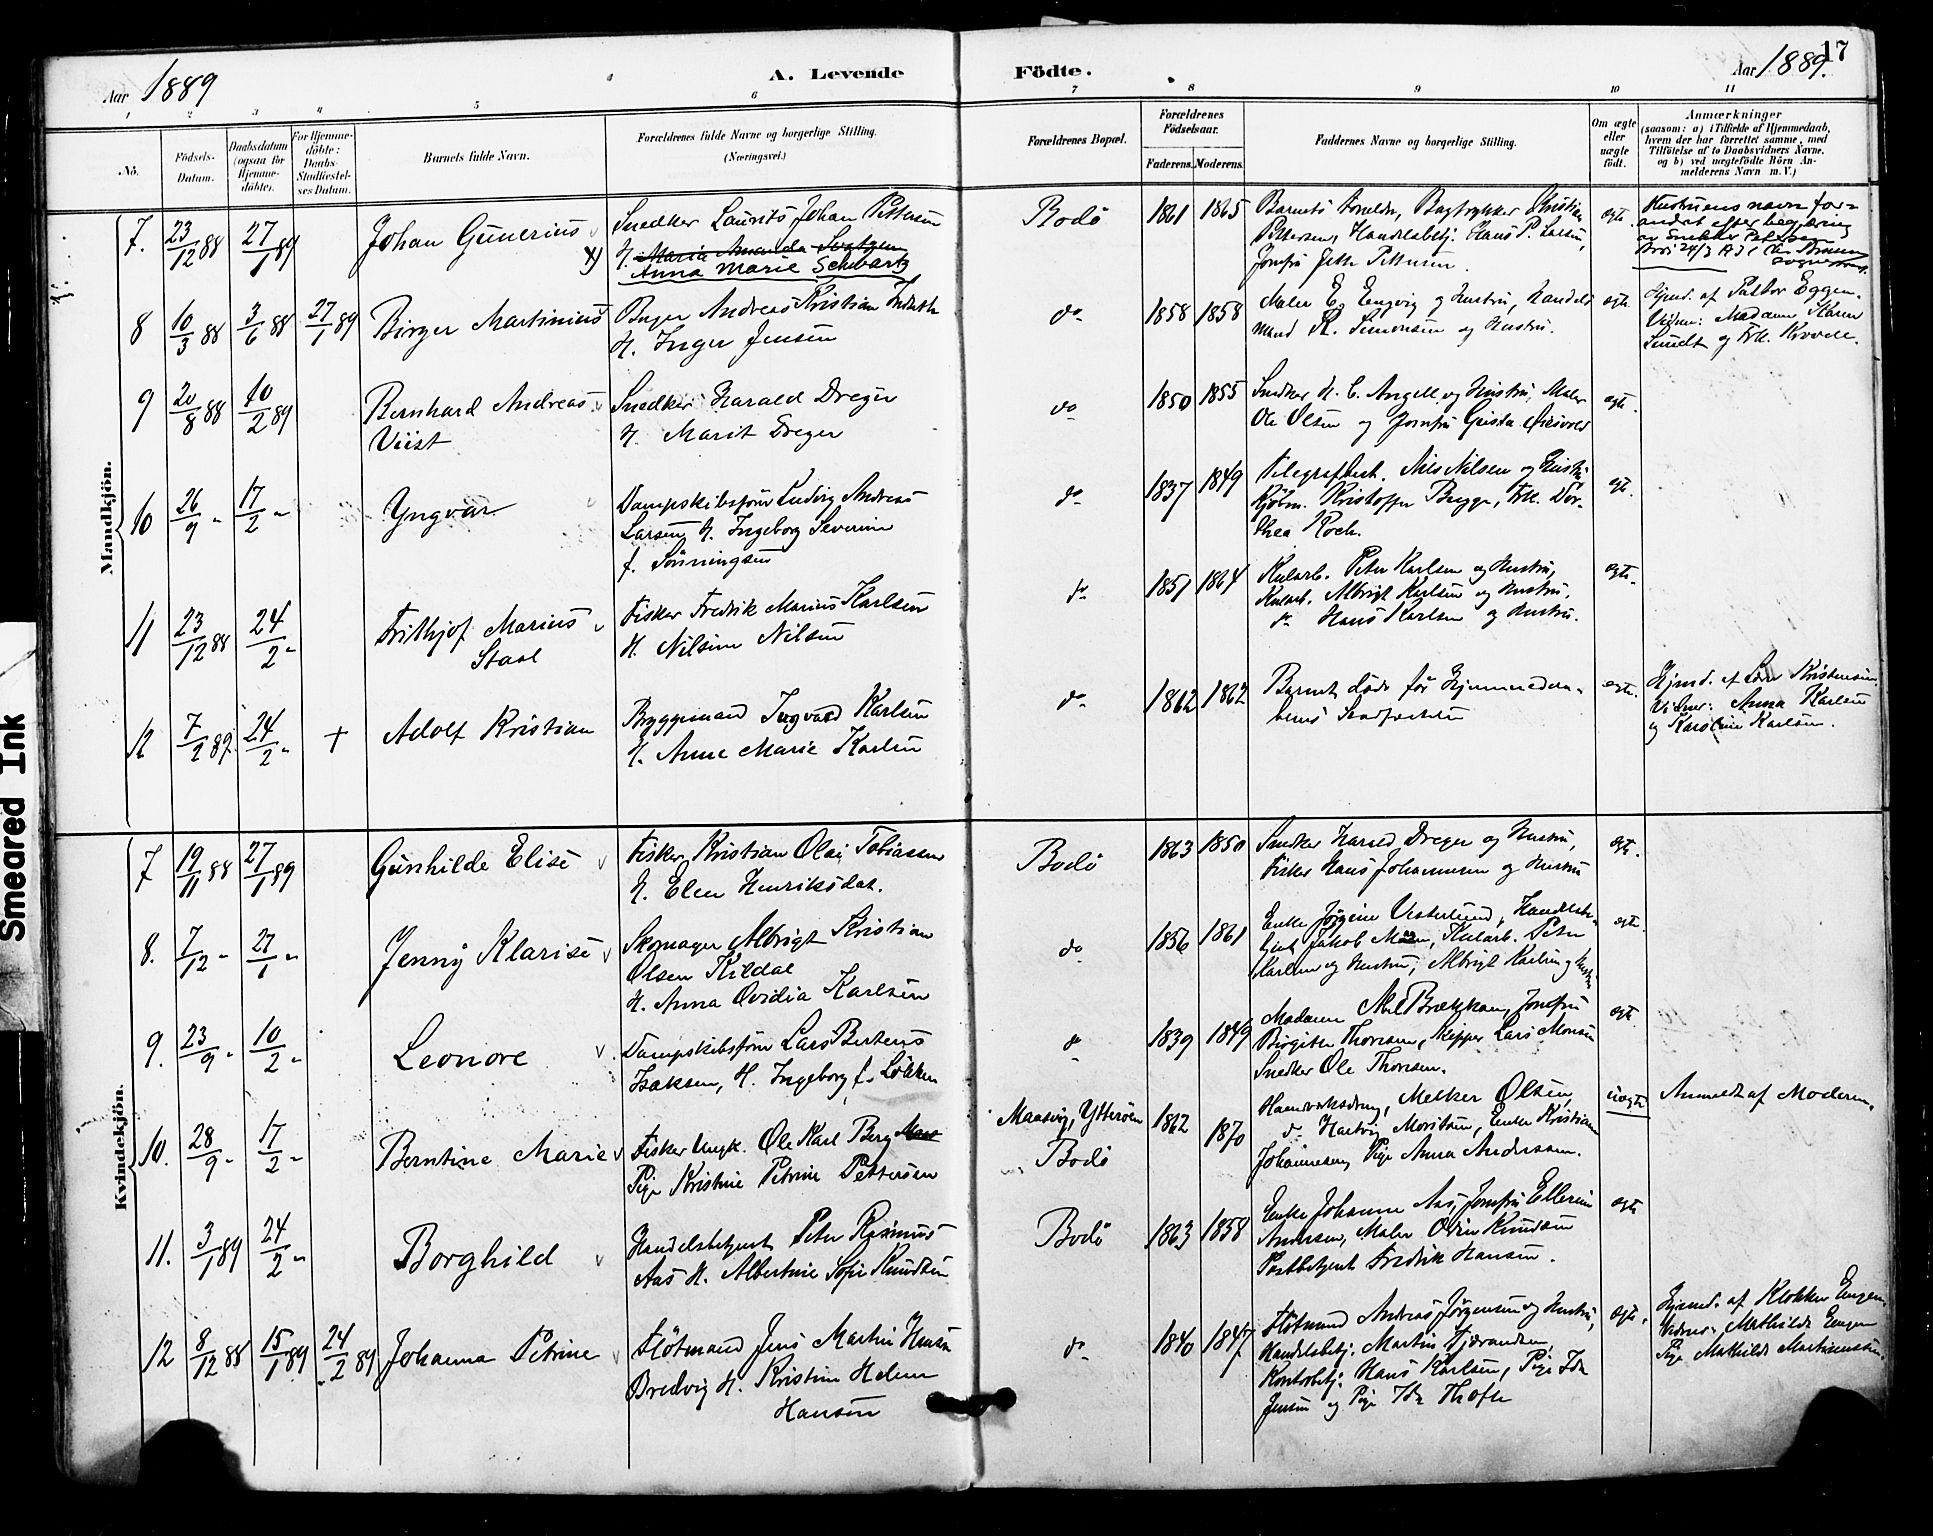 17
Aar 1889
A. Levende
Födte.
Aar 1889.
1 2 3 4 5 6 7 8 9 10 11
No.
Födsels-
Datum.
Daabsdatum
(ogsaa for
Hjemme-
döbte).
For Hjemme-
döbte:
Daabs-
Stadfæstel-
ses Datum.
Barnets fulde Navn.
Forældrenes fulde Navne og borgerlige Stilling.
(Næringsvei.)
Forældrenes Bopæl.
Forældrenes
Födselsaar.
Faderens. Moderens.
Faddernes Navne og borgerlige Stilling.
Om ægte
eller
uægte
født.
Anmærkninger
(saasom: a) i Tilfælde af Hjemmedaab,
hvem der har forrettet samme, med
Tilföielse af to Daabsvidners Navne,
og b) ved uægtefödte Börn An-
melderens Navn m. V.)
Mandkjön.
7. 23/12 88 27/1 89
Johan Gunerius
Snedker Laurits Johan Pettersen
H. Maria Amanda
Anna Marie Schwartz
Bodö
1861 1865
Barnets Forældre, Bogtrykker Kristian
Pettersen, Handelsbetj. Hans P. Larsen,
Jomfru Jette Pettersen.
egte.
Hustruens navn for-
andret efter begjæring
av Snekker Petersen
8 10/3 88 3/6 88 27/1 89
Birger Martinius
Andreas Kristian
H. Inger Jensen
do
1858 1858
Maler E. Engvig og Hustru, Handels
mand K. Simonsen og Hustru.
egte
Hjmd. af Pastor Eggen.
Vidner: Madam Karen
Sundt og Frk.
9 20/8 88 10/2 89
Bernhard Andreas
Viist
Snedker Harald Dreyer
H. Marit Dreyer
do
1850 1855
Snedker H. C. Angell og Hustru, Maler
Ole Olsen og Jomfru
egte.
10 26/9 " 17/2 "
Yngvar
Dampskibsförer Ludvig Andreas
Larsen, H. Ingeborg Severine
f. Sönningsen
do
1837 1849
Telegrafbest. Nils Nilsen og Hustru
Kjöbm. Kristoffer Brygge, Frk. Dor-
thea Koch.
egte.
11 23/12 88 24/2 "
Frithjof Marius
Staal
Fisker Fredrik Marius Karlsen
H. Nilsine Nilsen
do
1857 1864
Kularb. Peter Karlsen og Hustru,
Kularb. Albrigt Karlsen og Hustru,
do Hans Karlsen og Hustru.
egte.
12 7/2 89 24/2 " +
Adolf Kristian
Byggemand Ingvard Karlsen
H. Anne Marie Karlsen
do
1862 1862
Barnet döde för Hjemmedaa-
bens Stadfæstelse
egte.
Hjmd. af Kristensen.
Vidner: Anna Karlsen
og Karoline Karlsen.
Kvindekjön.
7 19/11 88 27/1 89
Gunhilde Elise
Fisker Kristian Olai Tobiassen
H. Elen Henriksdat.
Bodö
1863 1850
Snedker Harald Dreyer og Hustru,
Fisker Hans Johannesen og Hustru
egte.
8. 7/12 " 27/1 "
Jenny Klarise
Skomager Albrigt Kristian
Olsen Kildal
H. Anna Ovidia Karlsen
do
1856 1861
Enke Jörgine Vesterlund, Handelsbe-
tjent Jakob Moen, Kularb. Peter
Karlsen og Hustru, Albrigt Karlsen og Hustru
egte.
9. 23/9 " 10/2 "
Leonore
Dampskibsförer Lars Berteus
Isaksen, H. Ingeborg f. Lökken
do
1839 1849
Madame Abel Brækkan, Jomfru
Birgitte Thoresen, Skipper Lars Monsen
Snedker Ole Thoresen.
egte.
10. 28/9 " 17/2 "
Berntine Marie
Fisker Ungk. Ole Karl Berg
Pige Kristine Petrine Pettersen
Maasvig, Ytterøen
Bodö
1862
1870
Haandverksdreng, Melker Olsen,
do Hartvig Moritsen, Enke Kristiane
Johannesen, Pige Anna Anderssen.
uægte
Anmeldt af Moderen.
11. 3/1 89 24/2 "
Borghild
Handelsbetjent Peter Rasmus
Aas H. Albertine Sofie Knudsen
Bodö
1863 1858
Enke Johanne Aas, Jomfru Ellerine
Andersen, Maler Odin Knudsen
Postbetjent Fredrik Hansen.
egte
12 8/12 88 15/1 89 24/2 89
Johanna Petrine
Flötmand Jens Martin Hansen
Bredvig H. Kristine Helene
Hansen
do
1840 1847
Flötmand Andreas Jörgensen og Hustru,
Handelsbetj. Martin Tjærandsen,
Kontorbetj. Hans Karlsen, Pige Ida
Jensen og Pige Ida Thofte
egte.
Hjmd. af Klokker Engen.
Vidner: Mathilde Engen
Pige Mathilde Martinussen.
Smeared Ink